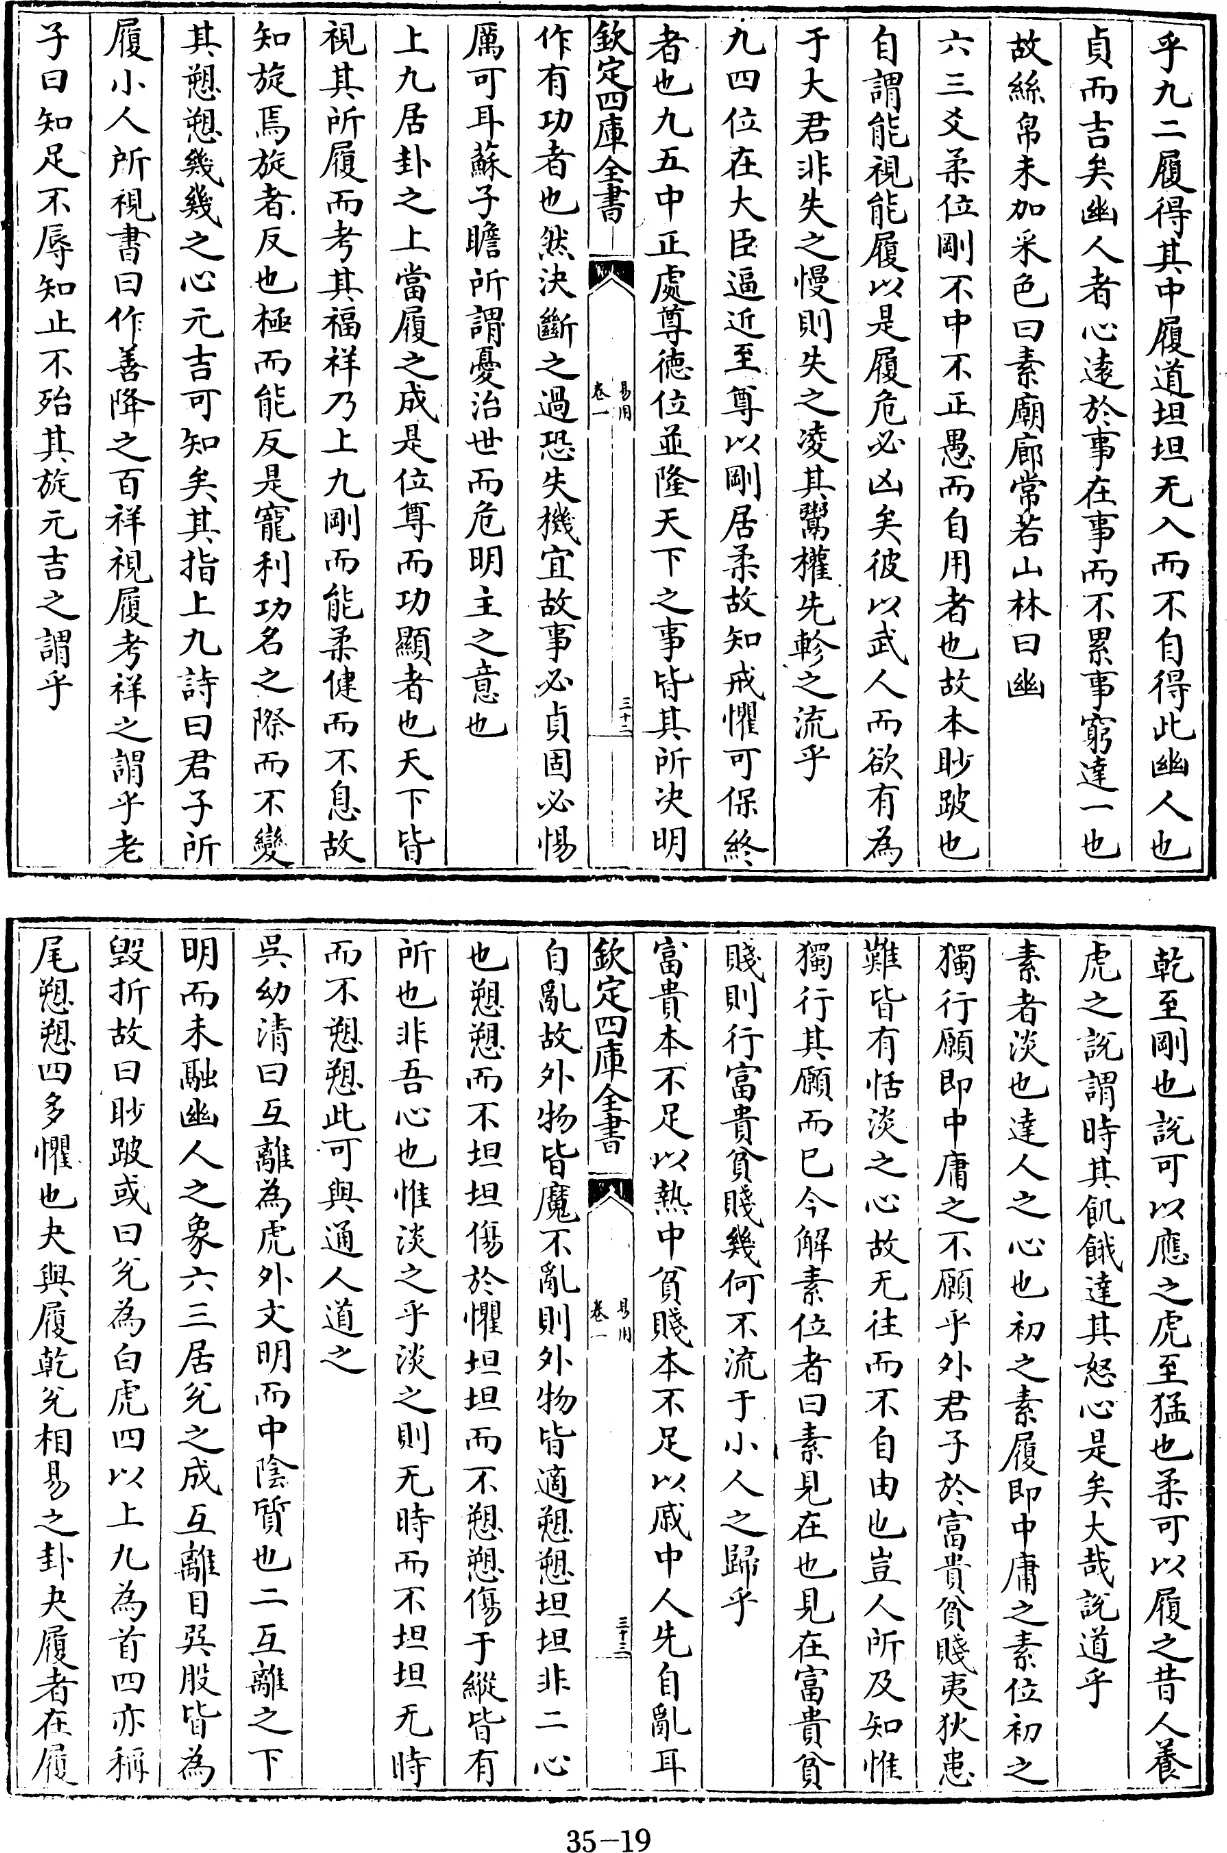 乎九二履得其中履道坦坦无入而不自得此幽人也
貞而吉矣幽人者心逺於事在事而不累事窮達一也
故絲帛未加采色曰素廟廊常若山林曰幽
六三爻柔位剛不中不正愚而自用者也故本眇跛也
自謂能視能履以是履危必凶矣彼以武人而欲有為
于大君非失之慢則失之凌其鬻權先軫之流乎
九四位在大臣逼近至尊以剛居柔故知戒懼可保終
者也九五中正處尊德位並隆天下之事皆其所决明
欽定四庫全書
易用
卷一
三十二
作有功者也然决斷之過恐失機宜故事必貞固必惕
厲可耳蘇子瞻所謂憂治世而危明主之意也
上九居卦之上當履之成是位尊而功顯者也天下皆
視其所履而考其福祥乃上九剛而能柔健而不息故
知旋焉旋者反也極而能反是寵利功名之際而不變
其愬愬幾幾之心元吉可知矣其指上九詩曰君子所
履小人所視書曰作善降之百祥視履考祥之謂乎老
子曰知足不辱知止不殆其旋元吉之謂乎
乾至剛也說可以應之虎至猛也柔可以履之昔人養
虎之說謂時其飢餓達其怒心是矣大哉說道乎
素者淡也達人之心也初之素履即中庸之素位初之
獨行願即中庸之不願乎外君子於富貴貧賤夷狄患
難皆有恬淡之心故无往而不自由也豈人所及知惟
獨行其願而已今解素位者曰素見在也見在富貴貧
賤則行富貴貧賤幾何不流于小人之歸乎
富貴本不足以熱中貧賤本不足以戚中人先自亂耳
欽定四庫全書
易用
卷一
三十三
自亂故外物皆魔不亂則外物皆適愬愬坦坦非二心
也愬愬而不坦坦傷於懼坦坦而不愬愬傷于縱皆有
所也非吾心也惟淡之乎淡之則无時而不坦坦无時
而不愬愬此可與通人道之
吳幼清曰互離為虎外文明而中陰質也二互離之下
明而未融幽人之象六三居兊之成互離目巽股皆為
毀折故曰眇跛或曰兊為白虎四以上九為首四亦稱
尾愬愬四多懼也夬與履乾兊相易之卦夬履者在履
35-19